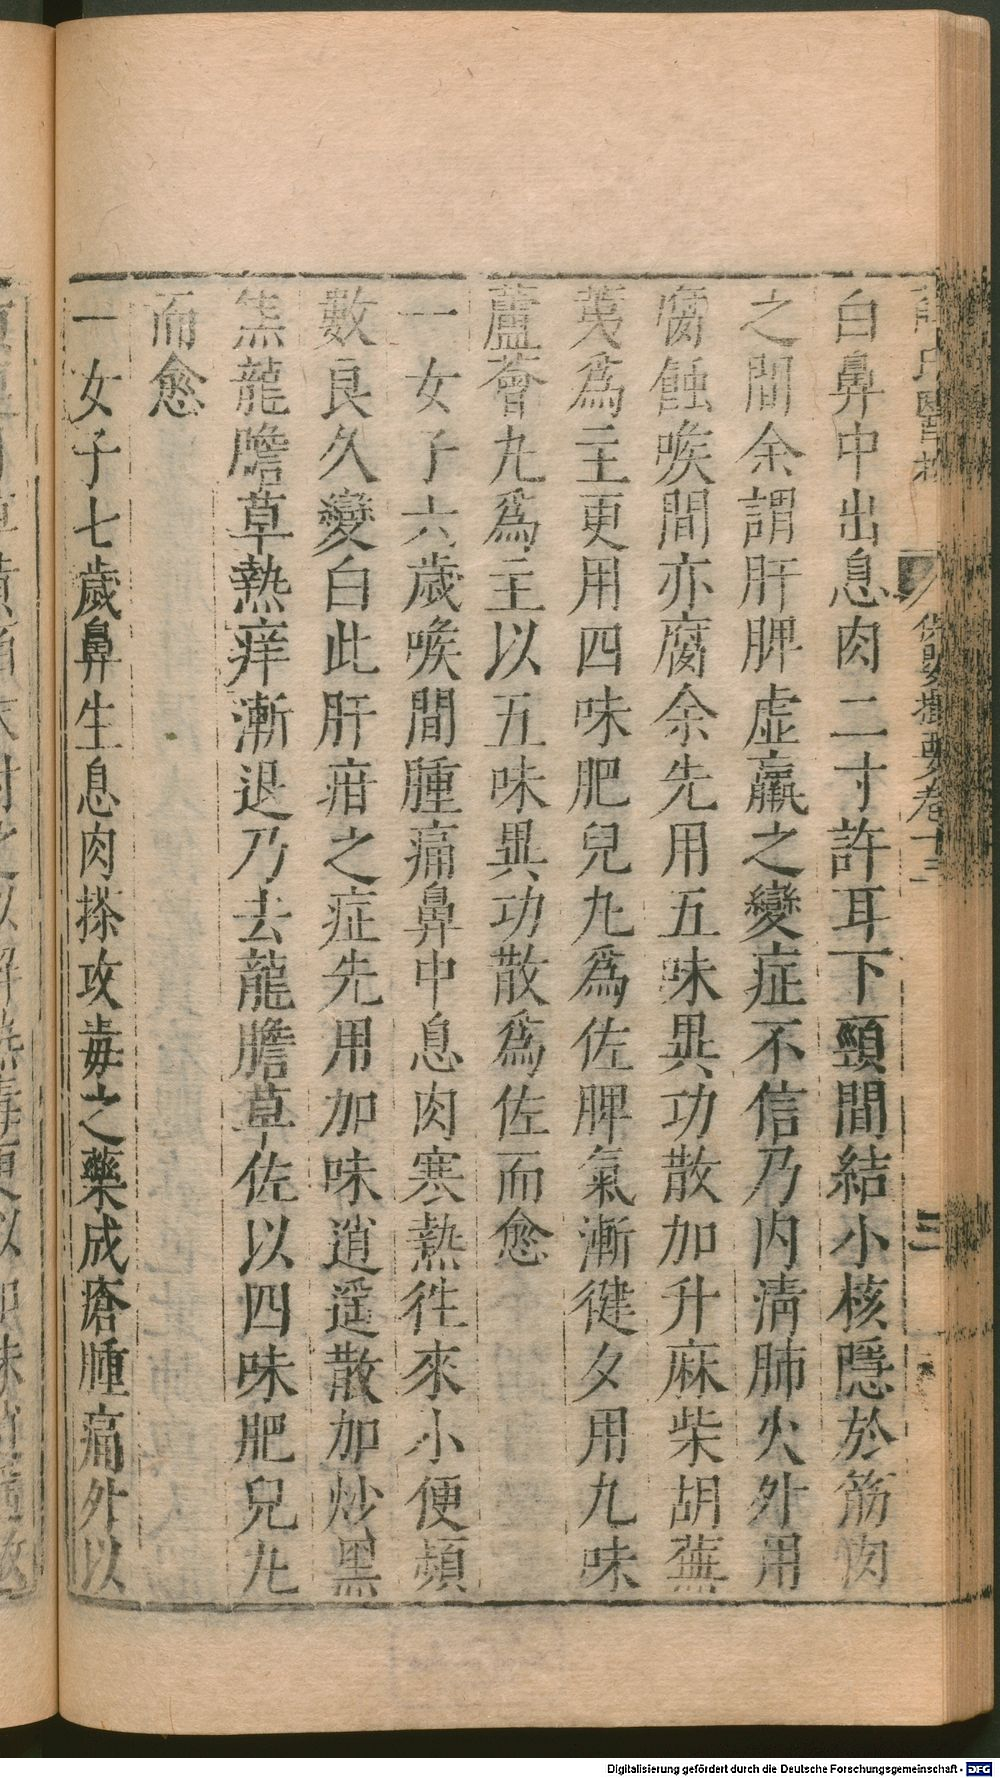 白鼻中出息肉二寸許耳下頸間結小核隱於筋肉
之間余謂肝脾虛羸之變症不信乃内清肺火外用
腐蝕喉間亦腐余先用五味異功散加升麻柴胡蕪
荑爲主更用四味肥兒丸爲佐脾氣漸健夕用九味
蘆薈丸爲主以五味異功散爲佐而愈
一女子六歲喉間腫痛鼻中息肉寒熱徃來小便頻
數良久變白此肝疳之症先用加味逍遥散加炒黑
黑龍膽草熱痒漸退乃去龍膽草佐以四味肥兒丸
而愈
一女子七歲鼻生息肉搽攻毒之藥成瘡腫痛外以
氏醫
保嬰撮要卷十三
三
Digitalisierung gefördert durch die Deutsche Forschungsgemeinschaft - DFG